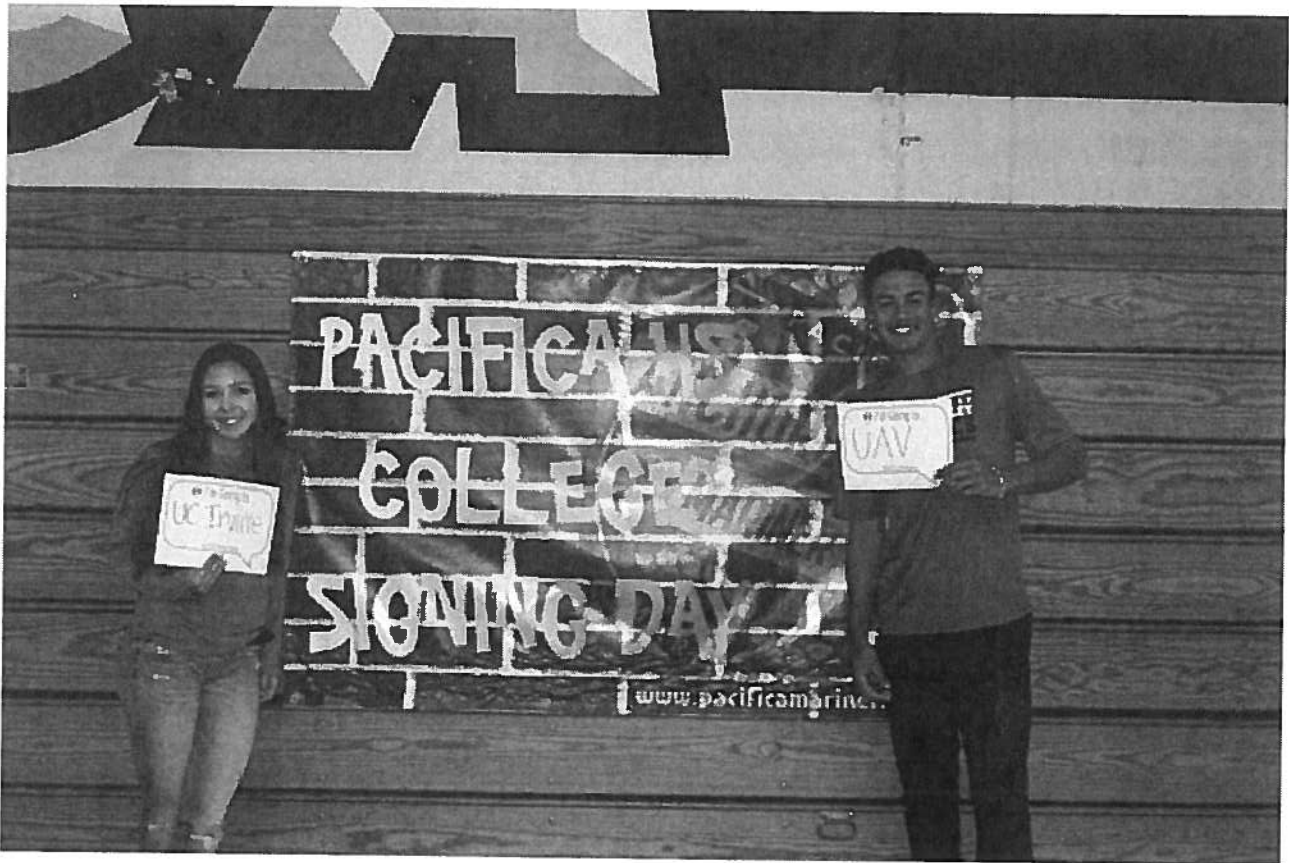 PACIFICA HS
COLLEGE
SIGNING DAY
www.pacificamariner
UC Irvine
UAV